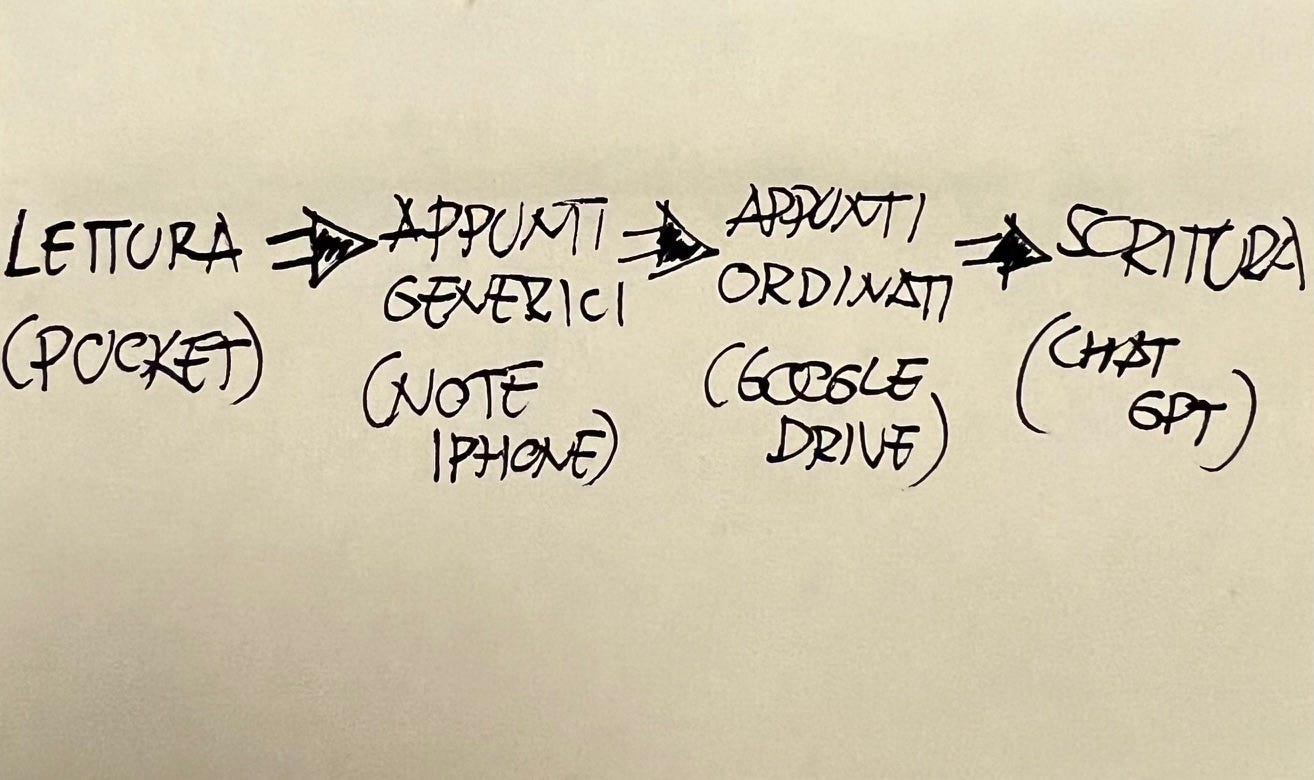 LETTURA ⇒ APPUNTI GENERICI ⇒ APPUNTI ORDINATI ⇒ SCRITTURA
(POCKET) (NOTE IPHONE) (GOOGLE DRIVE) (CHAT GPT)